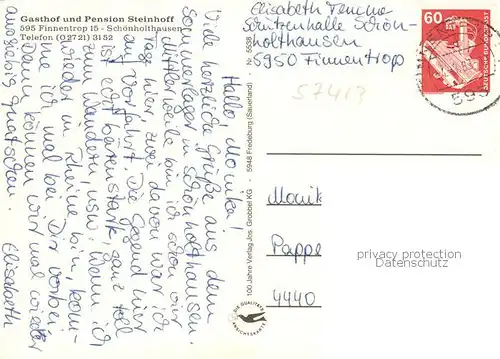 Gasthof und Pension Steinhoff
595 Finnentrop 15 - Schönholthausen
Telefon (02721) 3152
Hallo, Monika!
Viele herzliche Grüße aus dem
Sommerlager in Schönholthausen.
Mittlerweile bin ich schon vier
Tage hier, zwei davon war ich
auf Vorfahrt. Die Gegend hier
ist echt bärenstark, ganz toll
zum Wandern, usw. Wenn ich
wieder in Rheine bin, komme
ich mal bei Dir vorbei.
Dann können wir mal wieder
ausgiebig quatschen.
Elisabeth
100 Jahre Verlag Jos. Grobbel KG - 5948 Fredeburg (Sauerland) - Nr.
Elisabeth
Schützenhalle Schön-
holthausen
5950 Finnentrop
57413
60
DEUTSCHE BUNDESPOST
Monik
Pappe
4440
privacy protection
Datenschutz
DIE QUALITÄTS
ANSICHTSKARTE